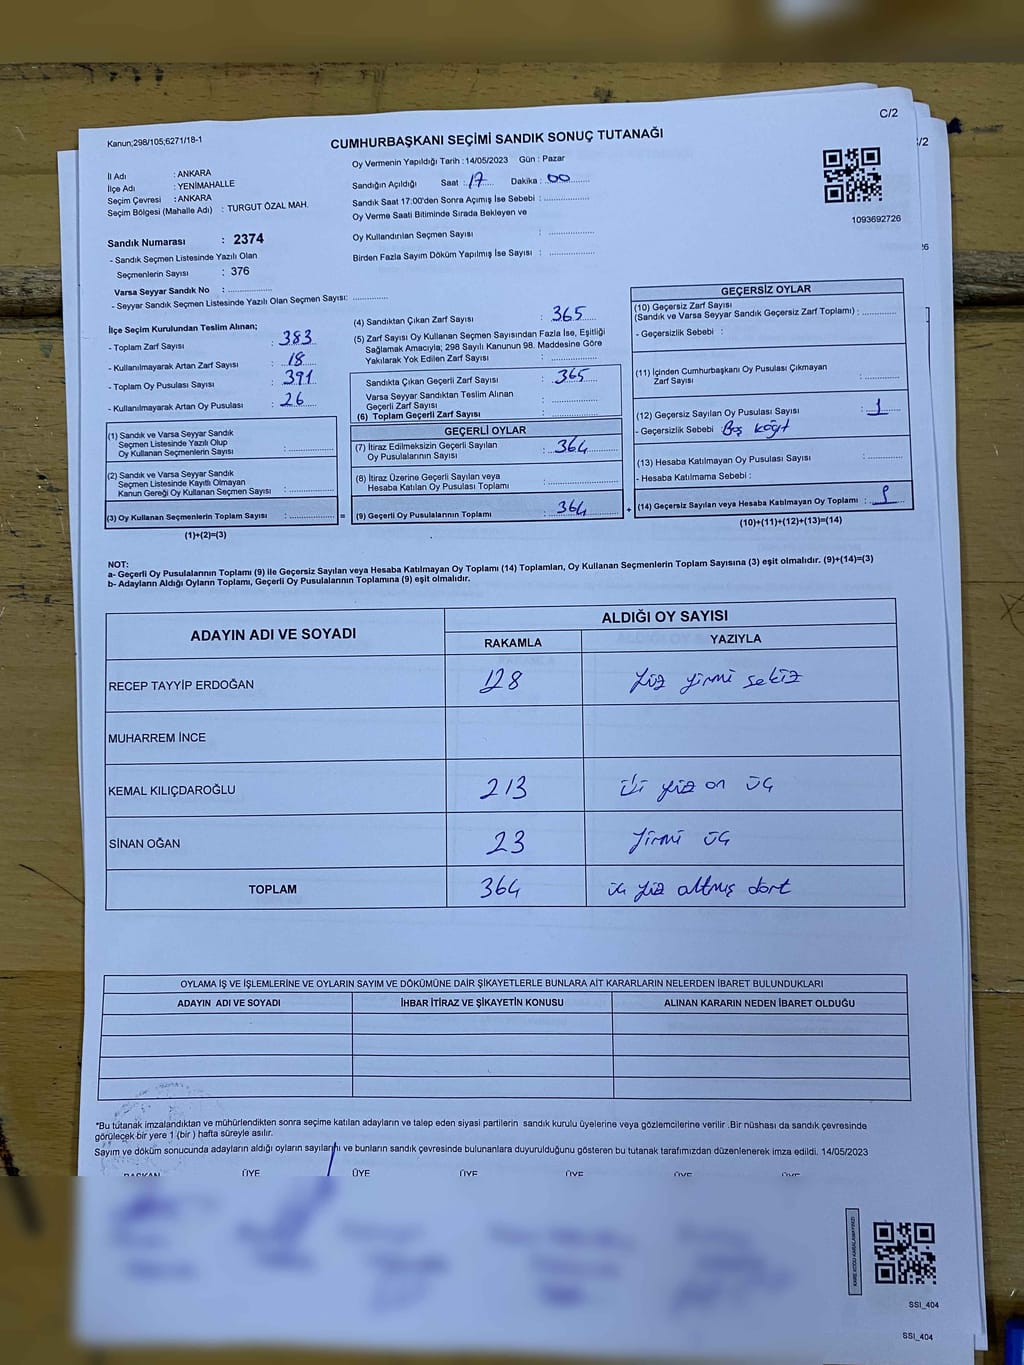 C/2
Kanun;298/105;6271/18-1
CUMHURBAŞKANI SEÇİMİ SANDIK SONUÇ TUTANAĞI
/2
İl Adı : ANKARA
İlçe Adı : YENİMAHALLE
Seçim Çevresi : ANKARA
Seçim Bölgesi (Mahalle Adı) : TURGUT ÖZAL MAH.
Oy Vermenin Yapıldığı Tarih : 14/05/2023 Gün : Pazar
Sandığın Açıldığı Saat : 17 Dakika : 00
Sandık Saat 17:00'den Sonra Açımış İse Sebebi :
Oy Verme Saati Bitiminde Sırada Bekleyen ve
Oy Kullandırılan Seçmen Sayısı :
Birden Fazla Sayım Döküm Yapılmış İse Sayısı :
1093692726
26
Sandık Numarası : 2374
- Sandık Seçmen Listesinde Yazılı Olan
Seçmenlerin Sayısı : 376
Varsa Seyyar Sandık No :
- Seyyar Sandık Seçmen Listesinde Yazılı Olan Seçmen Sayısı:
İlçe Seçim Kurulundan Teslim Alınan;
- Toplam Zarf Sayısı : 383
- Kullanılmayarak Artan Zarf Sayısı : 18
- Toplam Oy Pusulası Sayısı : 391
- Kullanılmayarak Artan Oy Pusulası : 26
(1) Sandık ve Varsa Seyyar Sandık
Seçmen Listesinde Yazılı Olup
Oy Kullanan Seçmenlerin Sayısı :
(2) Sandık ve Varsa Seyyar Sandık
Seçmen Listesinde Kayıtlı Olmayan
Kanun Gereği Oy Kullanan Seçmen Sayısı :
(3) Oy Kullanan Seçmenlerin Toplam Sayısı :
(1)+(2)=(3)
=
(4) Sandıktan Çıkan Zarf Sayısı : 365
(5) Zarf Sayısı Oy Kullanan Seçmen Sayısından Fazla İse, Eşitliği
Sağlamak Amacıyla; 298 Sayılı Kanunun 98. Maddesine Göre
Yakılarak Yok Edilen Zarf Sayısı :
Sandıkta Çıkan Geçerli Zarf Sayısı : 365
Varsa Seyyar Sandıktan Teslim Alınan
Geçerli Zarf Sayısı :
(6) Toplam Geçerli Zarf Sayısı :
GEÇERLİ OYLAR
(7) İtiraz Edilmeksizin Geçerli Sayılan
Oy Pusulalarının Sayısı : 364
(8) İtiraz Üzerine Geçerli Sayılan veya
Hesaba Katılan Oy Pusulası Toplamı :
(9) Geçerli Oy Pusulalarının Toplamı : 364
+
GEÇERSİZ OYLAR
(10) Geçersiz Zarf Sayısı
(Sandık ve Varsa Seyyar Sandık Geçersiz Zarf Toplamı) :
- Geçersizlik Sebebi :
(11) İçinden Cumhurbaşkanı Oy Pusulası Çıkmayan
Zarf Sayısı :
(12) Geçersiz Sayılan Oy Pusulası Sayısı : 1
- Geçersizlik Sebebi : Boş kağıt
(13) Hesaba Katılmayan Oy Pusulası Sayısı :
- Hesaba Katılmama Sebebi :
(14) Geçersiz Sayılan veya Hesaba Katılmayan Oy Toplamı :
(10)+(11)+(12)+(13)=(14)
NOT:
a- Geçerli Oy Pusulalarının Toplamı (9) ile Geçersiz Sayılan veya Hesaba Katılmayan Oy Toplamı (14) Toplamları, Oy Kullanan Seçmenlerin Toplam Sayısına (3) eşit olmalıdır. (9)+(14)=(3)
b- Adayların Aldığı Oyların Toplamı, Geçerli Oy Pusulalarının Toplamına (9) eşit olmalıdır.
ADAYIN ADI VE SOYADI
ALDIĞI OY SAYISI
RAKAMLA YAZIYLA
RECEP TAYYİP ERDOĞAN 128 Yüz yirmi sekiz
MUHARREM İNCE
KEMAL KILIÇDAROĞLU 213 iki yüz on üç
SİNAN OĞAN 23 Yirmi üç
TOPLAM 364 üç yüz altmış dört
OYLAMA İŞ VE İŞLEMLERİNE VE OYLARIN SAYIM VE DÖKÜMÜNE DAİR ŞİKAYETLERLE BUNLARA AİT KARARLARIN NELERDEN İBARET BULUNDUKLARI
ADAYIN ADI VE SOYADI İHBAR İTİRAZ VE ŞİKAYETİN KONUSU ALINAN KARARIN NEDEN İBARET OLDUĞU
*Bu tutanak imzalandıktan ve mühürlendikten sonra seçime katılan adayların ve talep eden siyasi partilerin sandık kurulu üyelerine veya gözlemcilerine verilir .Bir nüshası da sandık çevresinde
görülecek bir yere 1 (bir ) hafta süreyle asılır.
Sayım ve döküm sonucunda adayların aldığı oyların sayılarını ve bunların sandık çevresinde bulunanlara duyurulduğunu gösteren bu tutanak tarafımızdan düzenlenerek imza edildi. 14/05/2023
BAŞKAN ÜYE ÜYE ÜYE ÜYE ÜYE ÜYE
SSI_404
SSI_404